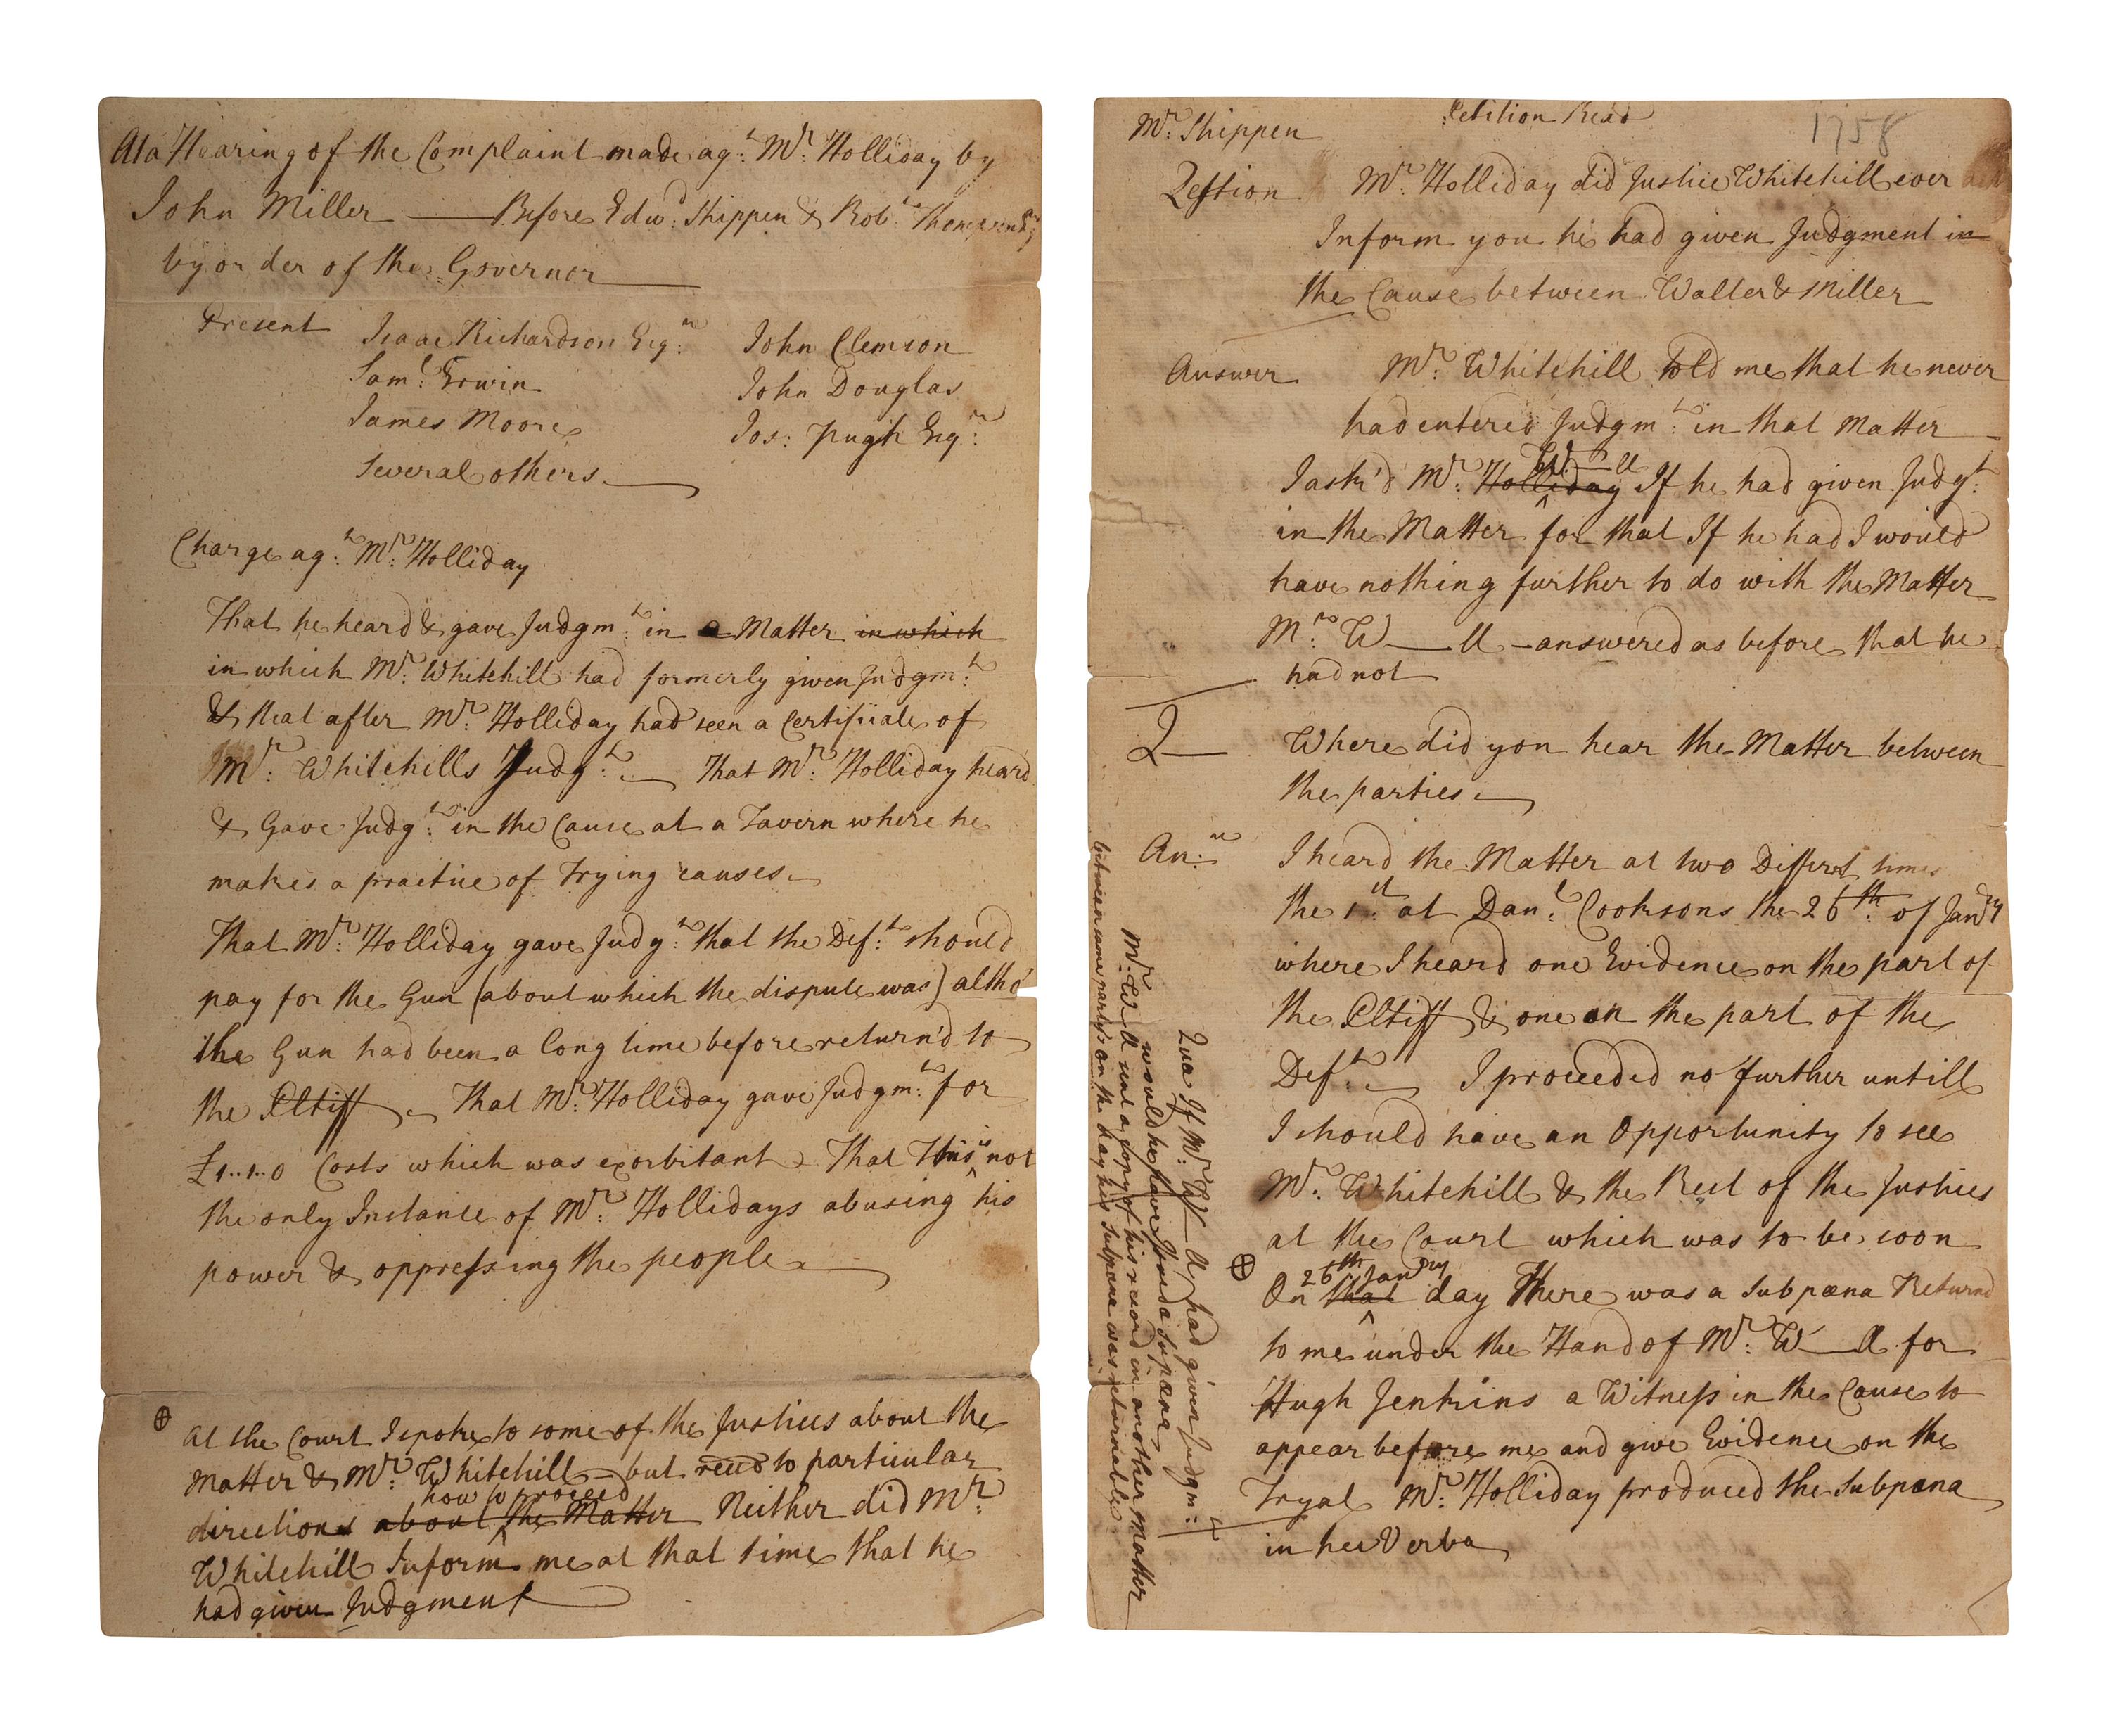 At a Hearing of the Complaint made ag:t Mr: Holliday by
John Miller — Before Edwd: Shippen & Robt: Thompson Esqrs
by order of the Governor
Present
Isaac Richardson Esqr:
Saml: Erwin
James Moore
Several others
John Clemson
John Douglas
Jos: Pugh Esqr:
Charge ag:t Mr: Holliday
That he heard & gave Judgm:t in a Matter in which
in which Mr: Whitehill had formerly given Judgm:t
& that after Mr: Holliday had seen a Certificate of
Mr: Whitehills Judg:t — That Mr: Holliday heard
& Gave Judg:t in the Cause at a Tavern where he
makes a practice of Trying causes
That Mr: Holliday gave Judg:t that the Def:t should
pay for the Gun (about which the dispute was) altho'
the Gun had been a long time before return'd to
the Pltiff — That Mr: Holliday gave Judgm:t for
£1..1..0 Costs which was exorbitant — That This is not
the only Instance of Mr: Hollidays abusing his
power & oppressing the people
⊕ At the Court I spoke to some of the Justices about the
Matter & Mr: Whitehill — but recd no particular
how to proceed
directions about the Matter Neither did Mr:
Whitehill Inform me at that time that he
had given Judgment
Mr: Shippen
Petition Read
1758
Qestion Mr: Holliday did Justice Whitehill ever
Inform you he had given Judgment in
the Cause between Waller & Miller
Answer Mr: Whitehill told me that he never
had entered Judgm:t in that Matter
W—ll
I ask'd Mr: Holliday If he had given Judg:t
in the Matter for that If he had I would
have nothing further to do with the Matter
Mr: W—ll — answered as before that he
had not
Q— Where did you hear the Matter between
the parties
An:r I heard the Matter at two Differnt times
the 1:st at Dan:l Cooksons the 26th: of Jandry
where I heard one Evidence on the part of
the Pltiff & one on the part of the
Def:t — I proceeded no further untill
I should have an Opportunity to see
Mr: Whitehill & the Rest of the Justices
at the Court which was to be soon
⊕ 26th Jandry
On that day There was a Subpæna Returnd
to me under the Hand of Mr: W—ll for
Hugh Jenkins a Witness in the Cause to
appear before me and give Evidence on the
Tryal Mr: Holliday produced the Subpæna
in hec Verba
Qua If Mr: W—ll had given Judgm:t
would he have Issued a Supæna
Mr: W—ll sent a Copy of his record in another Matter
between same partys on the day his Subpæna was returnable